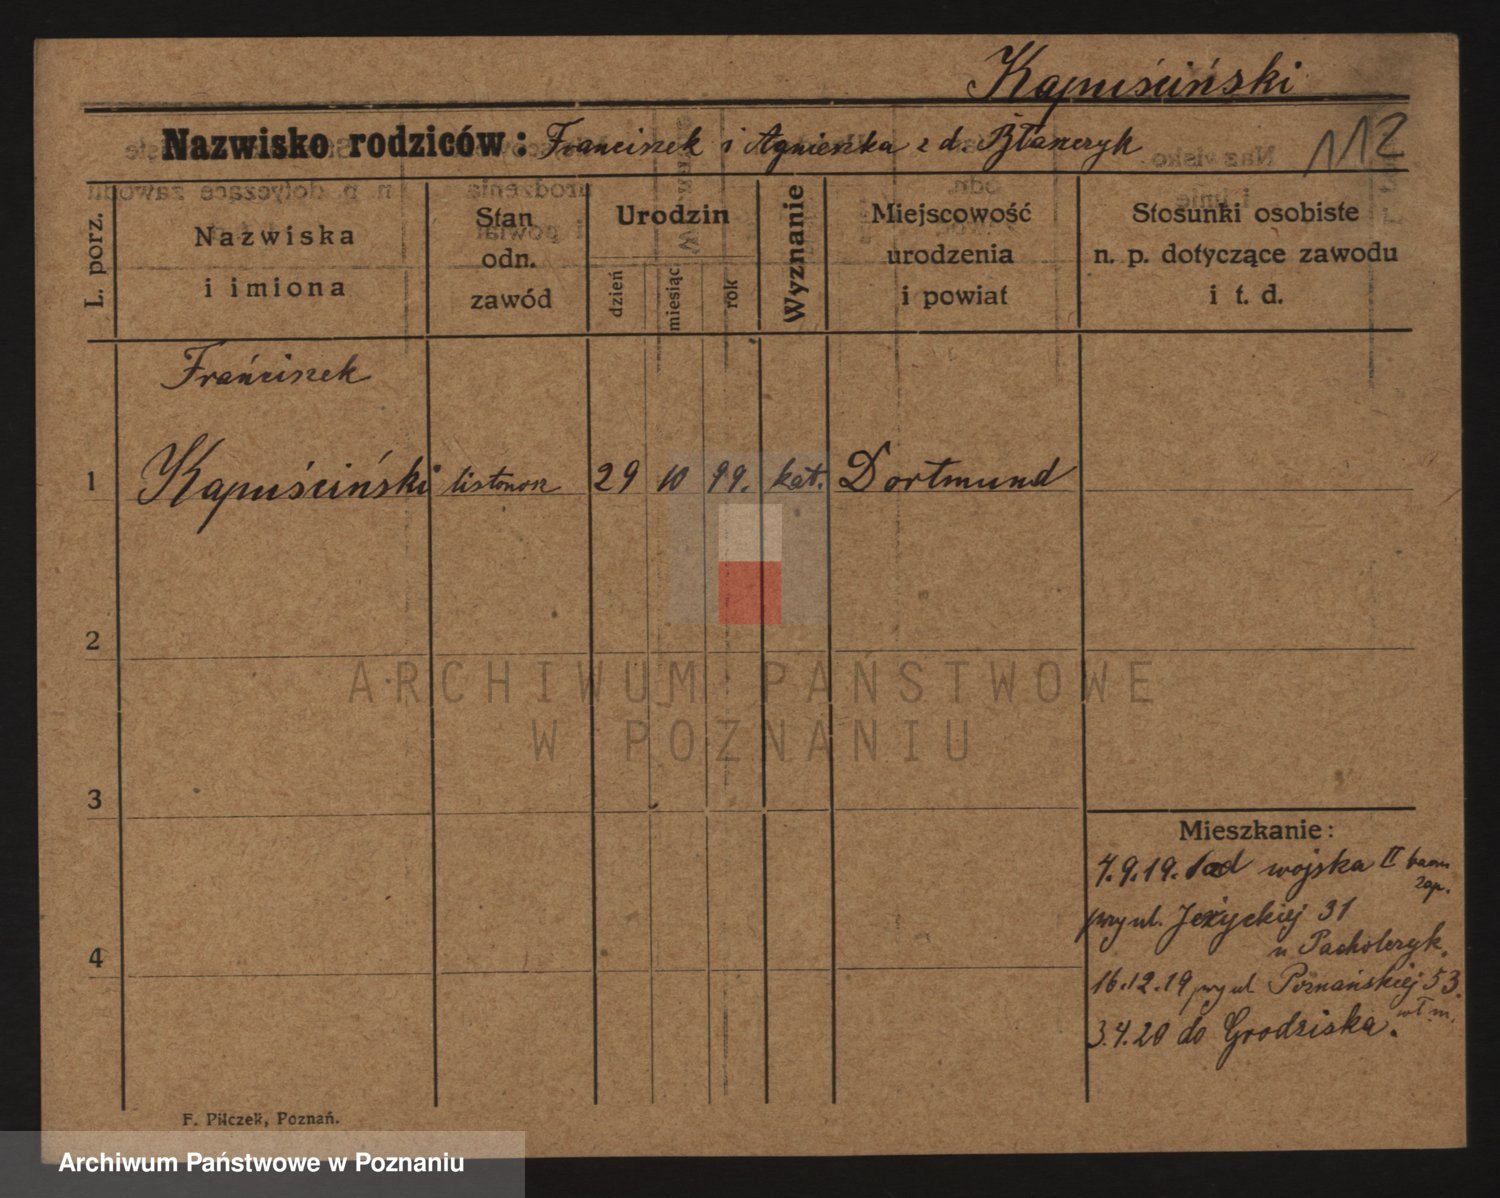 Kapuściński
Nazwisko rodziców: Franciszek i Agnieszka z d.
112
L. porz.
Nazwiska
i imiona
Stan
odn.
zawód
Urodzin
dzień
miesiąc
rok
Wyznanie
Miejscowość
urodzenia
i powiat
Stosunki osobiste
n. p. dotyczące zawodu
i t. d.
Frańciszek
1 Kapuściński listonosz 29 10 99. kat. Dortmund
2
ARCHIWUM PAŃSTWOWE
W POZNANIU
3
Mieszkanie:
4.9.19. od wojska II
zap.
przy ul. Jeżyckiej 31
u Pacholczyk.
4
16.12.19 przy ul Poznańskiej 53.
wł. m.
3.4.20 do Grodziska.
F. Pilczek, Poznań.
Archiwum Państwowe w Poznaniu